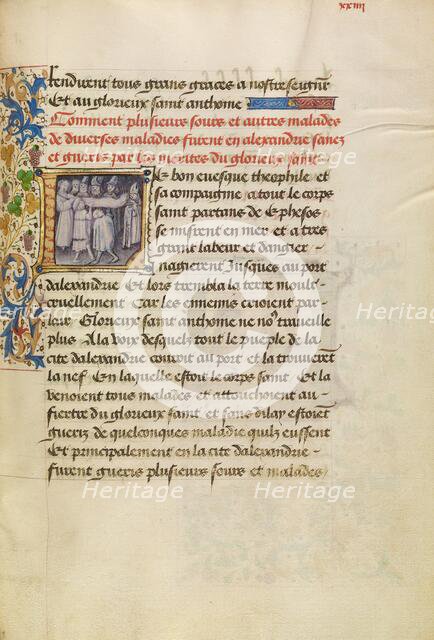 xxiiij
Rendirent tous grans graces a nostre seigneur
Et au glorieux saint anthoine
Comment plusieurs sours et autres malades
de diverses maladies furent en alexandrie sanez
et gueris par les merites du glorieux saint
Le bon evesque theophile et
sa compaignie a tout le corps
saint partans de Ephesos
se misrent en mer et a tres
grant labeur et dangier
nagierent Jusques au port
dalexandrie Et lors trembla la terre moult
cruellement Car les ennemis crioient par
leur Glorieux saint anthoine ne nos traveille
plus A la voix desquelz tout le pueple de la
cite dalexandrie couroit au port et la trouverent
la nef En laquelle estoit le corps saint Et la
venoient tous malades et attouchoient au
fiertre du glorieux saint et sans dilay estoient
gueriz de quelconques maladie quilz eussent
Et principalement en la cite dalexandrie
furent gueris plusieurs sours et malades
Heritage Heritage Heritage
Heritage Heritage Heritage
Heritage Heritage Heritage